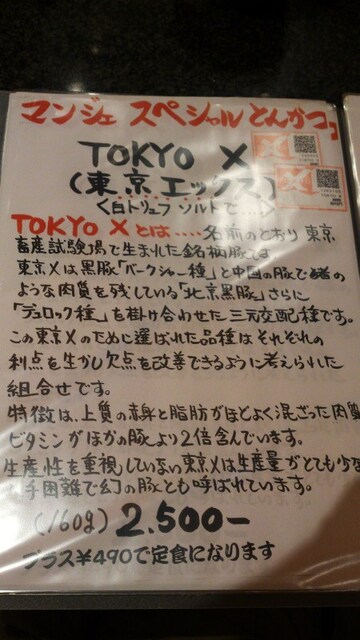 マンジェ スペシャル とんかつ
TOKYO X
(東京エックス)
〈白トリュフ ソルトで…〉
TOKYO Xとは‥‥名前のとおり 東京
畜産試験場で生まれた銘柄豚です
東京Xは黒豚「バークシャー種」と中国の豚で猪の
ような肉質を残している「北京黒豚」さらに
「デュロック種」を掛け合わせた三元交配種です。
この東京Xのために選ばれた品種は それぞれの
利点を生かし欠点を改善できるように考えられた
組合せです。
特徴は、上質の赤身と脂肪がほどよく混ざった肉質
ビタミンがほかの豚より2倍含んでいます。
生産性を重視していない東京Xは生産量がとても少な
手困難で幻の豚とも呼ばれています。
(160g) 2.500-
プラス¥490で定食になります